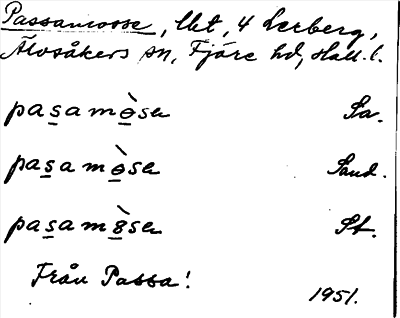 Passamosse, Ukt, 4 Lerberg,
Älvsåkers sn, Fjäre hd, Hall. l.
pasamòsa Sa.
pasamòsa Sand.
pasamòsa St.
Från Passa!
1951.